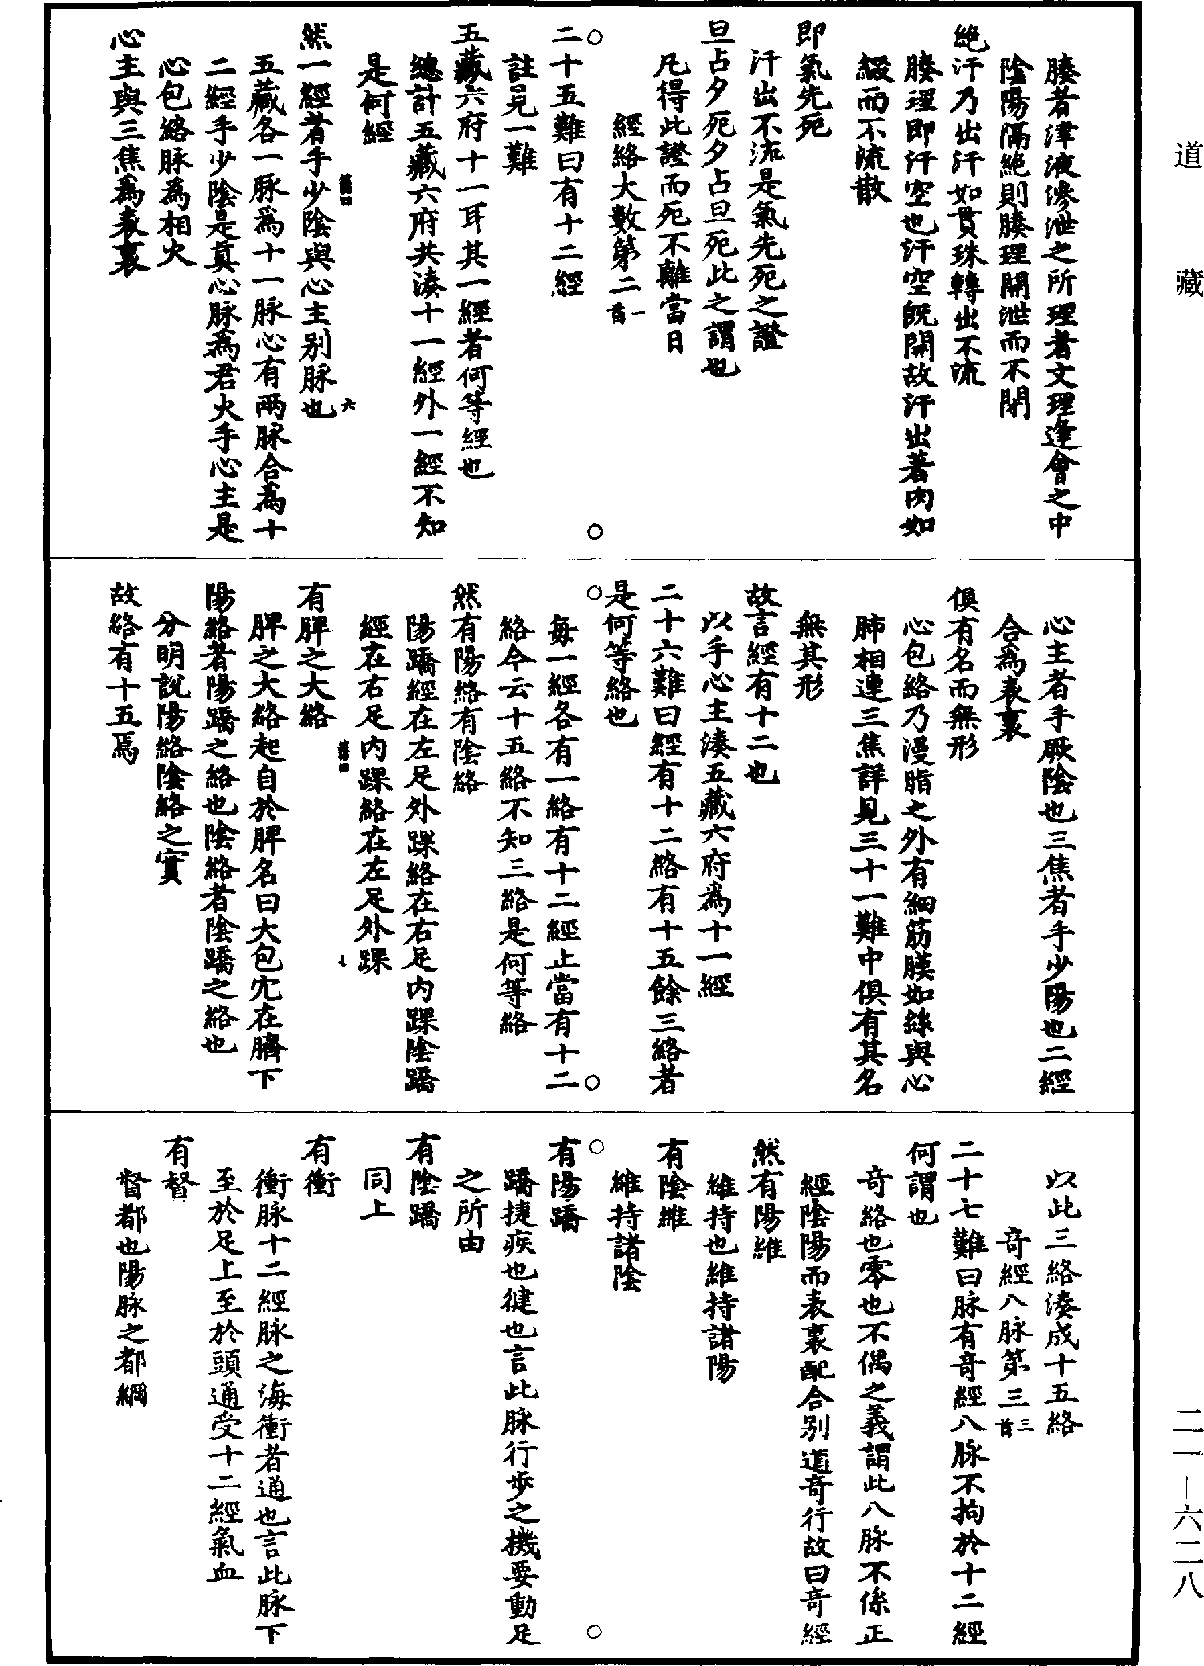 道藏
腠者津液滲泄之所理者文理逢會之中
陰陽隔絶則腠理開泄而不閉
絶汗乃出汗如貫珠轉出不流
腠理即汗空也汗空旣開故汗出著肉如
綴而不流散
即氣先死
汗出不流是氣先死之證
旦占夕死夕占旦死此之謂也
凡得此證而死不離當日
經絡大數第二一首
二十五難曰有十二經
註見一難
五藏六府十一耳其一經者何等經也
總計五藏六府共湊十一經外一經不知
是何經
然一經者手少陰與心主别脉也
六
五藏各一脉爲十一脉心有兩脉合爲十
二經手少陰是真心脉爲君火手心主是
心包絡脉爲相火
心主與三焦爲表裏
心主者手厥陰也三焦者手少陽也二經
合爲表裏
俱有名而無形
心包絡乃漫脂之外有細筋膜如絲與心
肺相連三焦詳見三十一難中俱有其名
無其形
故言經有十二也
以手心主湊五藏六府爲十一經
二十六難曰經有十二絡有十五餘三絡者
是何等絡也
每一經各有一絡有十二經止當有十二
絡今云十五絡不知三絡是何等絡
然有陽絡有陰絡
陽蹻經在左足外踝絡在右足内踝陰蹻
經在右足内踝絡在左足外踝
有脾之大絡
七
脾之大絡起自於脾名曰大包穴在臍下
陽絡者陽蹻之絡也陰絡者陰蹻之絡也
分明説陽絡陰絡之實
故絡有十五焉
以此三絡湊成十五絡
奇經八脉第三三首
二十七難曰脉有奇經八脉不拘於十二經
何謂也
奇絡也零也不偶之義謂此八脉不係正
經陰陽而表裏配合别道奇行故曰奇經
然有陽維
維持也維持諸陽
有陰維
維持諸陰
有陽蹻
蹻捷疾也健也言此脉行步之機要動足
之所由
有陰蹻
同上
有衝
衝脉十二經脉之海衝者通也言此脉下
至於足上至於頭通受十二經氣血
有督
督都也陽脉之都綱
二一—六二八